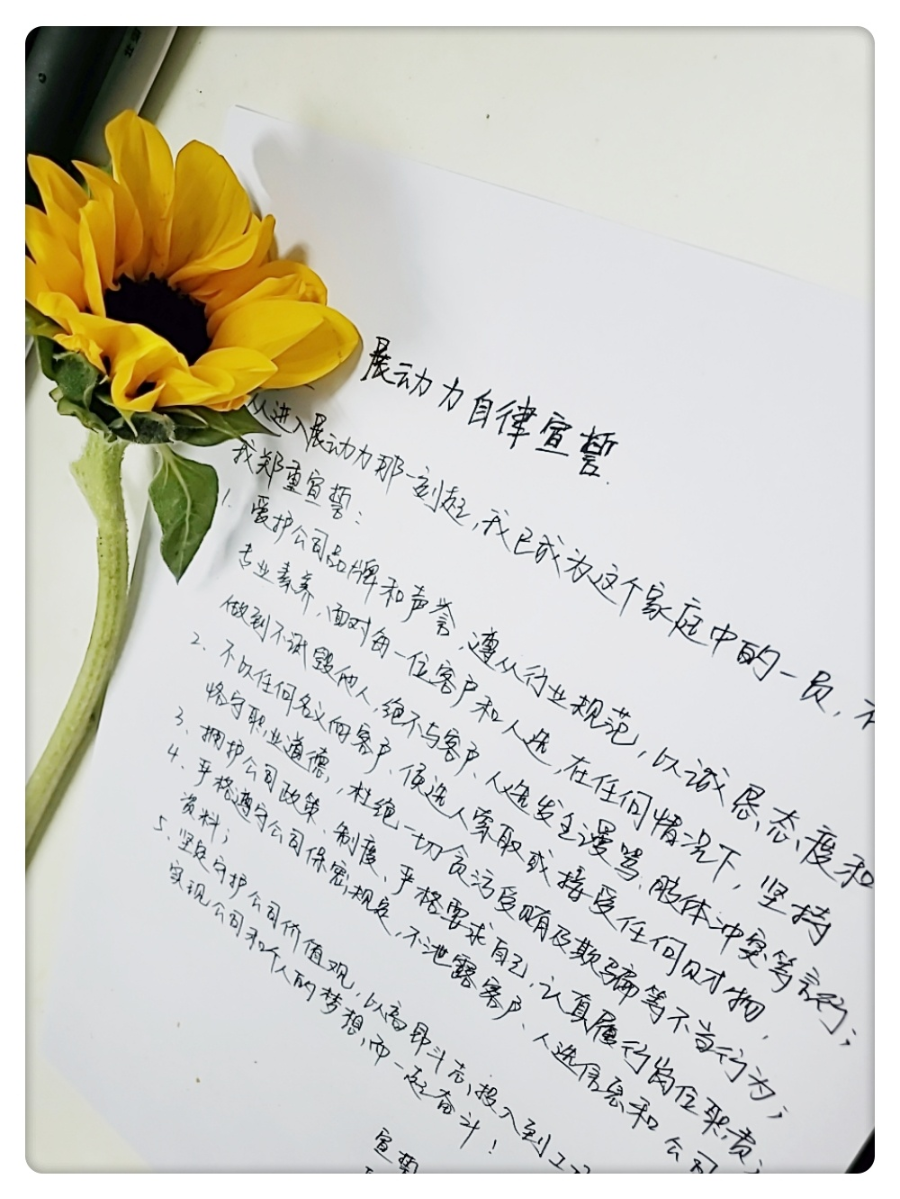 展动力自律宣誓
从进入展动力那一刻起,我已成为这个家庭中的一员,在
我郑重宣誓:
1. 爱护公司品牌和声誉,遵从行业规范,以诚恳态度和
专业素养,面对每一位客户和人选,在任何情况下,坚持
做到不诋毁他人,绝不与客户、人选发生谩骂、肢体冲突等言行;
2. 不以任何名义向客户、候选人索取或接受任何财物,
恪守职业道德,杜绝一切贪污受贿及欺骗等不当行为;
3. 拥护公司政策、制度、严格要求自己,认真履行岗位职责;
4. 严格遵守公司保密规定,不泄露客户、人选信息和公司
资料;
5. 坚定守护公司价值观,以高昂斗志,投入到工
实现公司和个人的梦想,而一起奋斗!
宣誓